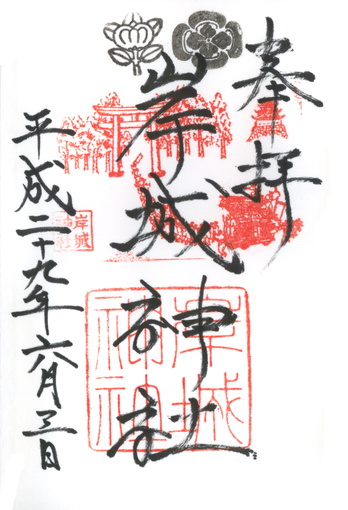 奉拝
岸城神社
平成二十九年六月三日
岸城
神社
岸城
神社